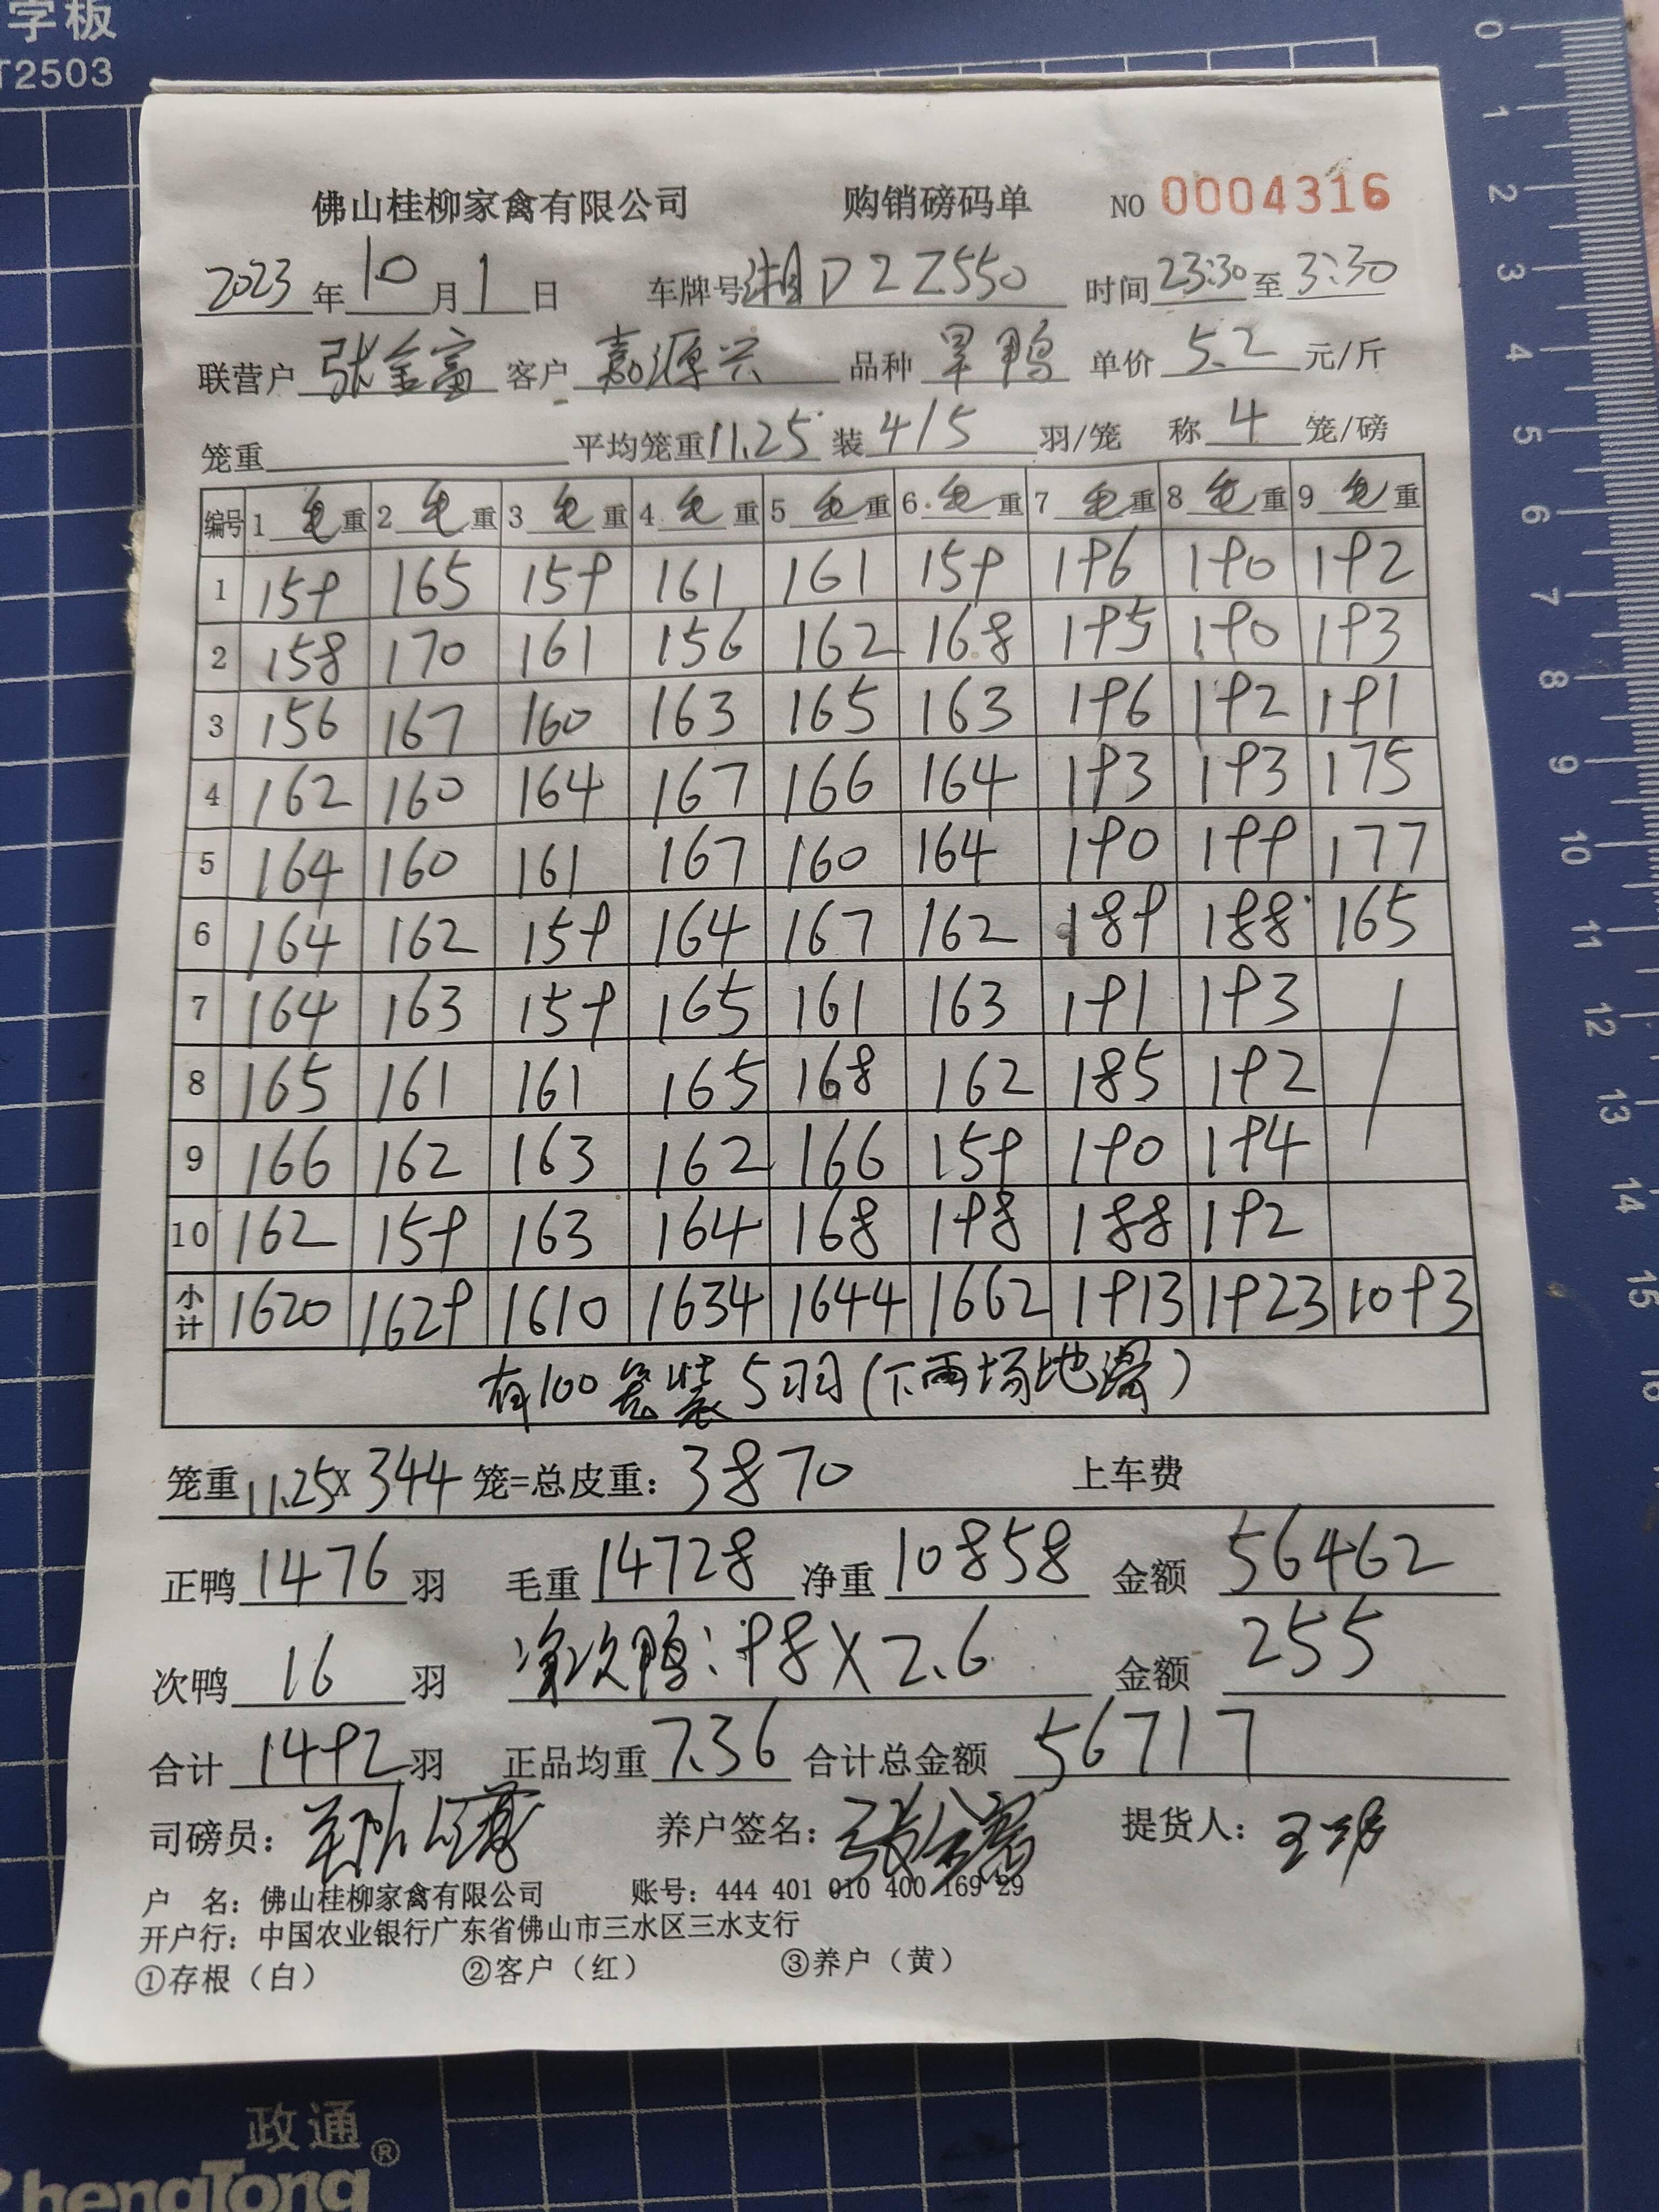 字板
T2503
0 1 2 3 4 5 6 7 8 9 10 11 12 13 14 15 16
佛山桂柳家禽有限公司 购销磅码单 NO 0004316
2023 年 10 月 1 日 车牌号 湘D2Z550 时间 23:30 至 3:30
联营户 张金富 客户 嘉源兴 品种 旱鸭 单价 5.2 元/斤
笼重 平均笼重 11.25 装 4/5 羽/笼 称 4 笼/磅
编号 1 毛重 2 毛重 3 毛重 4 毛重 5 毛重 6 毛重 7 毛重 8 毛重 9 毛重
1 159 165 159 161 161 159 196 190 192
2 158 170 161 156 162 168 195 190 193
3 156 167 160 163 165 163 196 192 191
4 162 160 164 167 166 164 193 193 175
5 164 160 161 167 160 164 190 199 177
6 164 162 159 164 167 162 189 188 165
7 164 163 159 165 161 163 191 193
8 165 161 161 165 168 162 185 192
9 166 162 163 162 166 159 190 194
10 162 159 163 164 168 198 188 192
小计 1620 1629 1610 1634 1644 1662 1913 1923 1093
有100笼装5羽(下雨场地滑)
笼重 11.25 X 344 笼=总皮重: 3870 上车费
正鸭 1476 羽 毛重 14728 净重 10858 金额 56462
次鸭 16 羽 净次鸭: 98 X 2.6 金额 255
合计 1492 羽 正品均重 7.36 合计总金额 56717
司磅员: 养户签名: 张金富 提货人:
户 名: 佛山桂柳家禽有限公司 账号: 444 401 010 400 169 29
开户行: 中国农业银行广东省佛山市三水区三水支行
①存根(白) ②客户(红) ③养户(黄)
政通®
ZhengTong